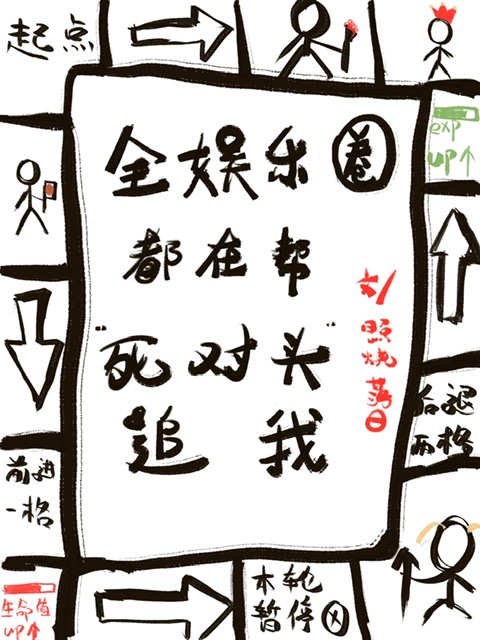 起点
全娱乐圈
都在帮
"死对头"
追我
文/照烧荡日
exp
up↑
后退
两格
前进
一格
生命值
up↑
本轮
暂停